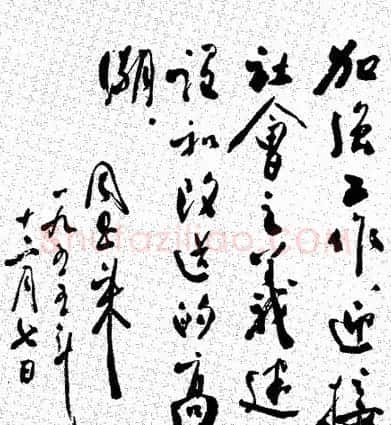 加強工作、迎接
社會主義建
設和改造的高
潮.
周恩来
一九五五年
十二月七日
shufaziliao.COM